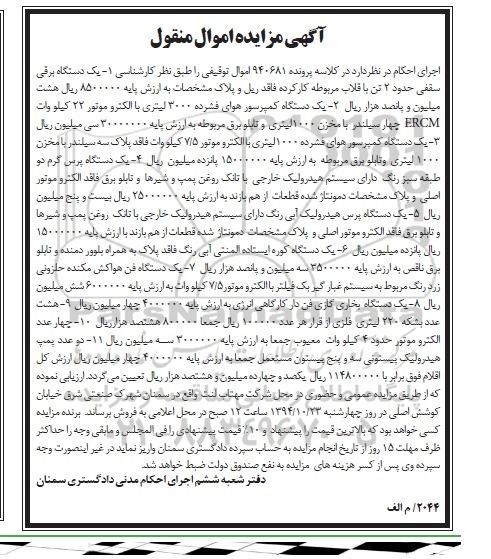 آگهی مزایده اموال منقول
اجرای احکام در نظر دارد در کلاسه پرونده ۹۴۰۶۸۱ اموال توقیفی را طبق نظر کارشناسی ۱- یک دستگاه برقی
سقفی حدود ۲ تن با قلاب مربوطه کارکرده فاقد ریل و پلاک مشخصات به ارزش پایه ۸۵۰۰۰۰۰ ریال هشت
میلیون و پانصد هزار ریال ۲- یک دستگاه کمپرسور هوای فشرده ۳۰۰۰ لیتری با الکترو موتور ۲۲ کیلو وات
ERCM چهار سیلندر با مخزن ۱۰۰۰ لیتری و تابلو برق مربوطه به ارزش پایه ۳۰۰۰۰۰۰۰ سی میلیون ریال
۳- یک دستگاه کمپرسور هوای فشرده ۱۰۰۰ لیتری با الکترو موتور ۷/۵ کیلو وات فاقد پلاک سه سیلندر با مخزن
۱۰۰۰ لیتری وتابلو برق مربوطه به ارزش پایه ۱۵۰۰۰۰۰۰ پانزده میلیون ریال ۴- یک دستگاه پرس گرم دو
طبقه سبز رنگ دارای سیستم هیدرولیک خارجی با تانک روغن پمپ و شیرها و تابلو برق فاقد الکترو موتور
اصلی و پلاک مشخصات دمونتاژ شده قطعات از هم بازند به ارزش پایه ۲۵۰۰۰۰۰۰ ریال بیست و پنج میلیون
ریال ۵- یک دستگاه پرس هیدرولیک آبی رنگ دارای سیستم هیدرولیک خارجی با تانک روغن پمپ و شیرها
و تابلو برق فاقد الکترو موتور اصلی و پلاک مشخصات دمونتاژ شده قطعات از هم بازند با ارزش پایه ۱۵۰۰۰۰۰۰
ریال پانزده میلیون ریال ۶- یک دستگاه کوره ایستاده المنتی آبی رنگ فاقد پلاک به همراه بلوور دمنده و تابلو
برق ناقص به ارزش پایه ۳۵۰۰۰۰۰ سه میلیون و پانصد هزار ریال ۷- یک دستگاه فن هواکش مکنده حلزونی
زرد رنگ مربوط به سیستم غبار گیر بک فیلتر با الکترو موتور ۷/۵ کیلو وات به ارزش پایه ۶۰۰۰۰۰۰ شش میلیون
ریال ۸- یک دستگاه بخاری گازی فن دار کارگاهی انرژی به ارزش پایه ۴۰۰۰۰۰۰ چهار میلیون ریال ۹- هشت
عدد بشکه ۲۲۰ لیتری فلزی از قرار هر عدد ۱۰۰۰۰۰ ریال جمعا ۸۰۰۰۰۰ هشتصد هزار ریال ۱۰- چهار عدد
الکترو موتور حدود ۴ کیلو وات معیوب جمعا به ارزش پایه ۳۰۰۰۰۰۰ سه میلیون ریال ۱۱- دو عدد پمپ
هیدرولیک پیستونی سه و پنج پیستون مستعمل جمعا به ارزش پایه ۴۰۰۰۰۰۰ چهار میلیون ریال ارزش کل
اقلام فوق برابر با ۱۱۴۸۰۰۰۰۰ ریال یکصد و چهارده میلیون و هشتصد هزار ریال تعیین می گردد. ارزیابی نموده
که از طریق مزایده عمومی و حضوری در محل شرکت مهتاب لنت واقع در سمنان شهرک صنعتی شرق خیابان
کوشش اصلی در روز چهارشنبه ۱۳۹۴/۱۰/۲۳ ساعت ۱۲ صبح در محل اعلامی به فروش برساند. برنده مزایده
کسی خواهد بود که بالاترین قیمت را پیشنهاد و ۱۰٪ قیمت پیشنهادی را فی المجلس و مابقی وجه را حداکثر
ظرف مهلت ۱۵ روز از تاریخ انجام مزایده به حساب سپرده دادگستری سمنان واریز نماید در غیر اینصورت وجه
سپرده وی پس از کسر هزینه های مزایده به نفع صندوق دولت ضبط خواهد شد.
دفتر شعبه ششم اجرای احکام مدنی دادگستری سمنان
۲۰۴۴/ م الف